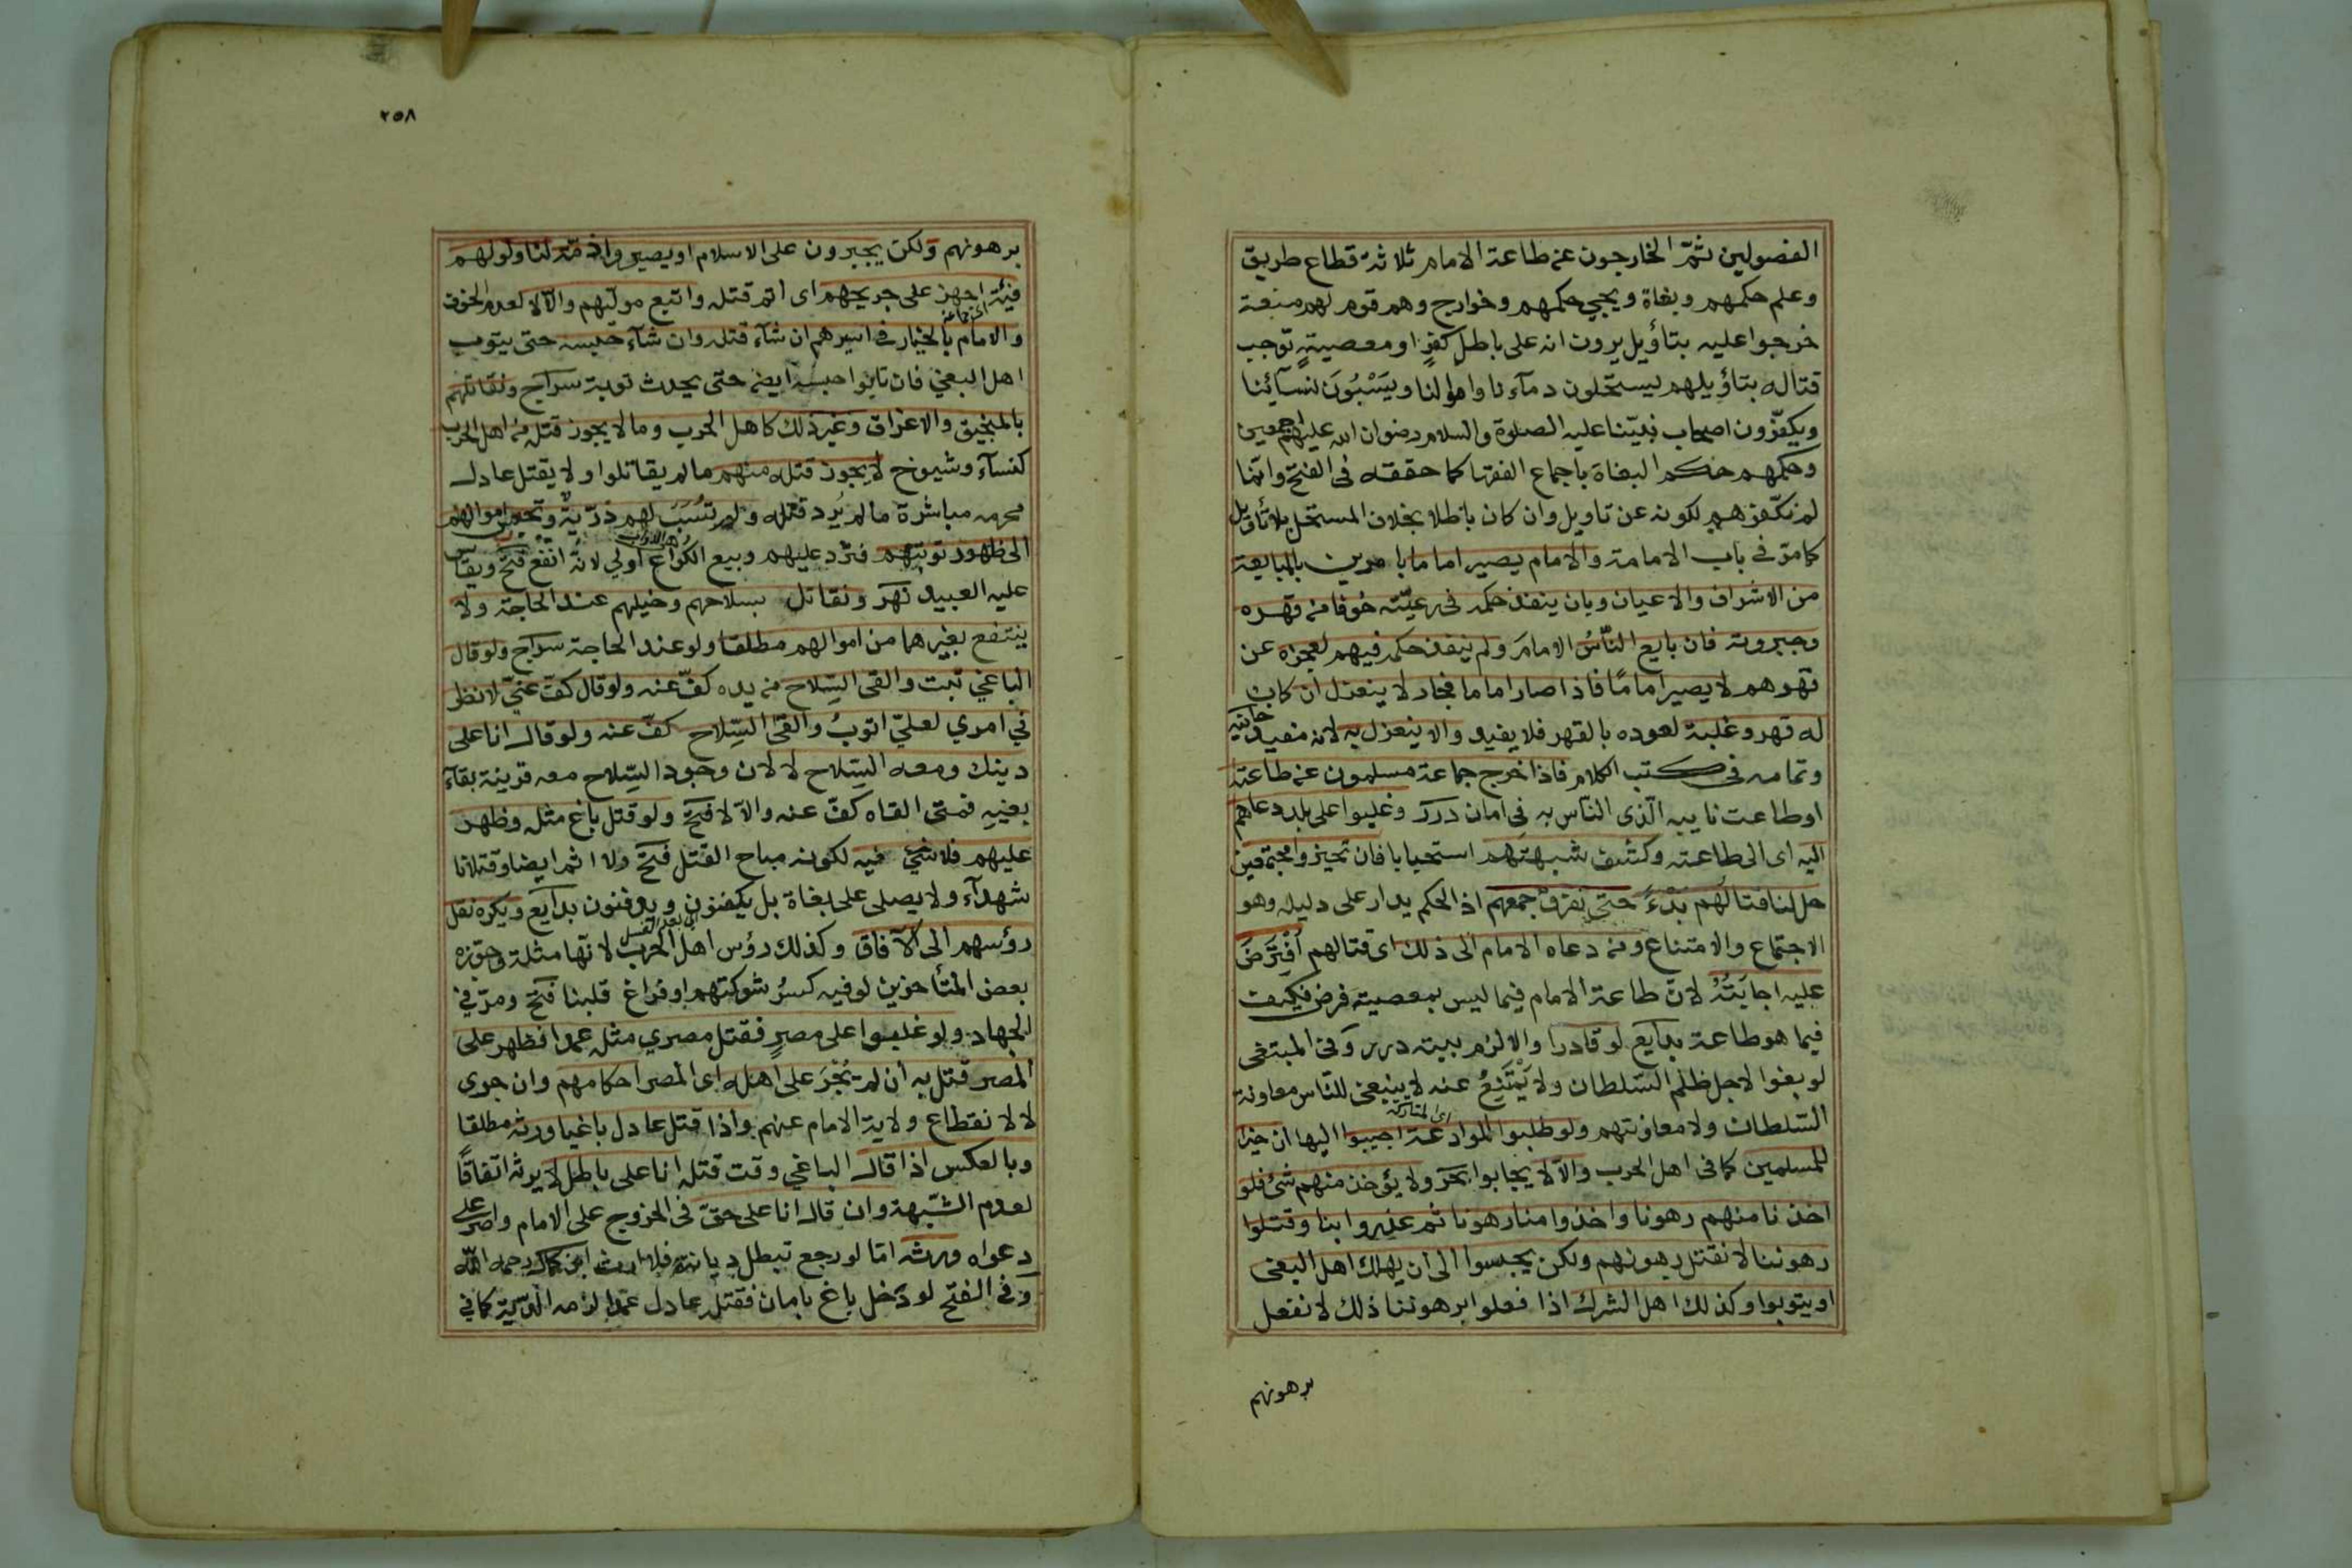 الفصولين ثمّ الخارجون عن طاعة الامام ثلاثة قطاع طريق
وعلم حكمهم وبغاة ويجي حكمهم وخوارج وهم قوم لهم منعة
خرجوا عليه بتأويل يرون انه على باطلِ كفرٍ او معصيةٍ توجب
قتاله بتاؤيلهم ليستحلون دمآءنا واموالنا ويَسْبُونَ لنسآئنا
ويكفّرون اصحاب نبيّنا عليه الصلوة والسلام رضوان الله عليهم اجمعين
وحكمهم حكم البغاة باجماع الفقها كما حققه فى الفتح وانّما
لم نكفّرهم لكونه عن تاويل وان كان باطلا بخلاف المستحل بلا تأويل
كما مرّ فى باب الامامة والامام يصير اماما بامرين بالمبايعة
من الاشراف والاعيان وبان ينفذ حكمه فى رعيّته خوفا من قهره
وجبروته فان بايع النّاسُ الامامَ ولم ينفذ حكمه فيهم لعجزه عن
قهرهم لا يصير امامًا فاذا صار اماما فجار لا ينعزل ان كان
له قهر وغلبة لعوده بالقهر فلا يفيد والا ينعزل به لانه مفيد خانيه
وتمامه فى كتب الكلام فاذا خرج جماعة مسلمون عن طاعته
اوطاعت نايبه الّذى النّاس به فى امان درر وغلبوا على بلد دعاهم
اليه اى الى طاعته وكشف شبهتَهم استحبابا فان تحيزوا مجتمعين
حل لنا قتالُهم بَدْءً حتى نفرّق جمعهم اذ الحكم يدار على دليله وهو
الاجتماع والامتناع ومن دعاه الامام الى ذلك اى قتالهم اُفْتُرِضَ
عليه اجابَتُهُ لانّ طاعة الامام فيما ليس بمعصية فرض فكيف
فيما هو طاعة بدايع لو قادرا والا لزم بيته درر وفى المبتغى
لو بغوا لاجل ظلم السّلطان ولا يَمْتَنِعُ عنه لا ينبغى للنّاس معاونة
السّلطان ولا معاونتهم ولو طلبوا الموادعة اجيبوا اليها ان خيرا
اى المتاركة
للمسلمين كما فى اهل الحرب والّا لا يجابوا بحر ولا يؤخذ منهم شئ فلو
اخذنا منهم رهونا واخذوا منا رهونا ثم غدروا بنا وقتلوا
رهوننا لا نقتل رهونهم ولكن يحبسوا الى ان يهلك اهل البغى
او يتوبوا وكذلك اهل الشرك اذا فعلوا برهوننا ذلك لا نفعل
برهونهم
٢٥٨
برهونهم ولكن يجبرون على الاسلام او يصيروا ذمّة لنا ولو لهم
فئة اجهز على جريحهم اى اتم قتله واتبع موليّهم والّا لا لعدم الخوف
اى جماعة
والامام بالخيار فى اسيرهم ان شآء قتله وان شآء حبسه حتى يتوب
اهل البغي فان تابوا حبسه ايضا حتى يحدث توبة سراج ونقاتلهم
بالمنجيق والاغراق وغير ذلك كاهل الحرب وما لا يجوز قتله من اهل الحرب
كنسآء وشيوخ لا يجوز قتله منهم ما لم يقاتلوا ولا يقتل عادل
محرمه مباشرة ما لم يُرد قتله ولم تُسْبَ لهم ذرّيةٌ وتحبس اموالهم
الى ظهور توبتهم فتردّ عليهم وبيع الكُراع اولى لانّه انفع فتح ويقاس
عليه العبيد نهر ونقاتل بسلاحهم وخيلهم عند الحاجة ولا
ينتفع بغيرهما من اموالهم مطلقا ولو عند الحاجة سراج ولو قال
الباغي تبت والقى السّلاح من يده كفّ عنه ولو قال كفّ عنّي لانظر
في امري لعليّ اتوبُ والقى السِّلاح كفّ عنه ولو قال انا على
دينك ومعه السّلاح لا لان وجود السّلاح معه قرينة بقآء
بغيهِ فمتى القاه كفّ عنه والّا لا فتح ولو قتل باغ مثله وظهر
عليهم فلا شئ فيه لكونه مباح القتل فتح ولا اثم ايضا وقتلانا
شهدآء ولا يصلى على بغاة بل يكفنون ويدفنون بدايع ويكره نقل
رؤسهم الى الآفاق وكذلك رؤس اهل الحرب لانّها مثلة وجوّزه
بعض المتأخرين لو فيه كسرُ شوكتهم او فراغ قلبنا فتح ومرّ في
الجهاد ولو غلبوا على مصرٍ فقتل مصري مثله عمدا فظهر على
المصر قتل به ان لم يُجْرَ على اهله اى المصر احكامهم وان جرى
لا لانقطاع ولاية الامام عنهم واذا قتل عادل باغيا ورثه مطلقا
وبالعكس اذا قال الباغي وقت قتله انا على باطل لا يرثه اتفاقًا
لعدم الشّبهة وان قال انا على حقّ فى الخروج على الامام واصر على
دعواه ورثه امّا لو رجع تبطل ديانته فلا ارث ابن كمال رحمه الله
وفى الفتح لو دخل باغ بامان فقتله عادل عمدا لزمه الدّية كما في